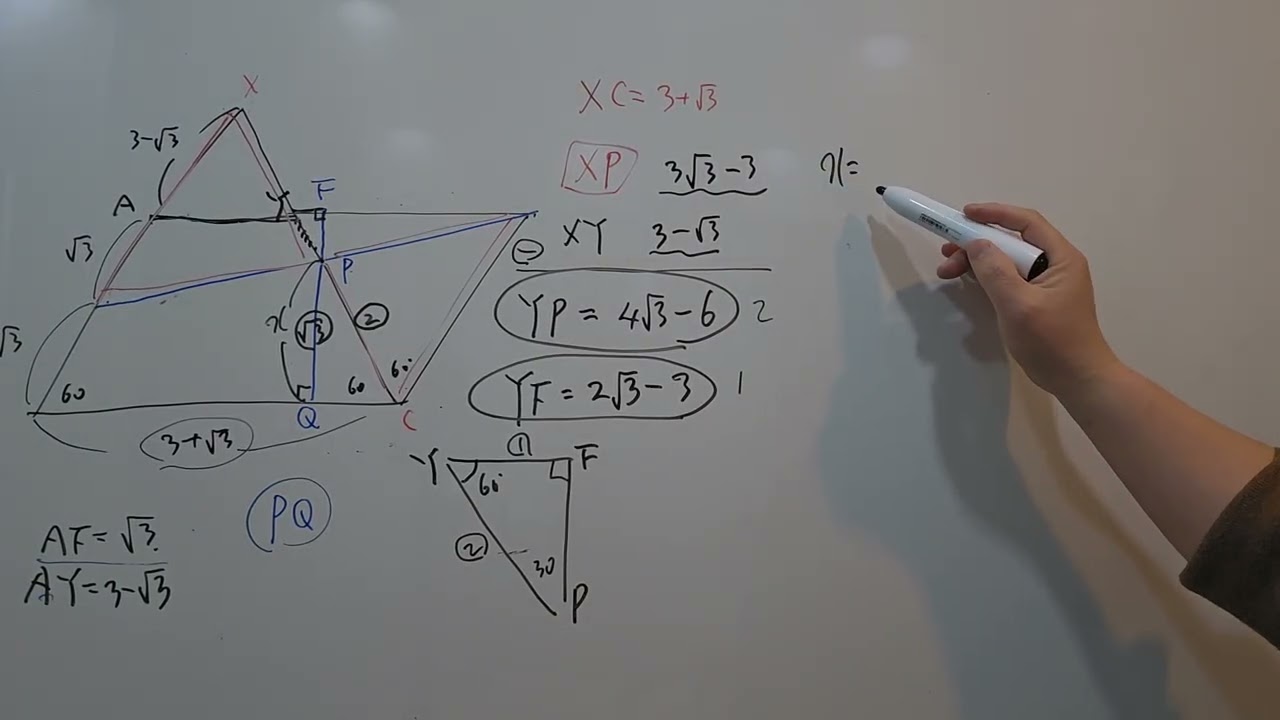 X
3-√3
A
Y
F
√3
P
x
√3
②
60°
60
60
√3
Q
C
3+√3
PQ
AF=√3
AY=3-√3
XC=3+√3
XP 3√3-3
XY 3-√3
⊖
YP=4√3-6 2
YF=2√3-3 1
①
Y
F
60°
②
30
P
x=